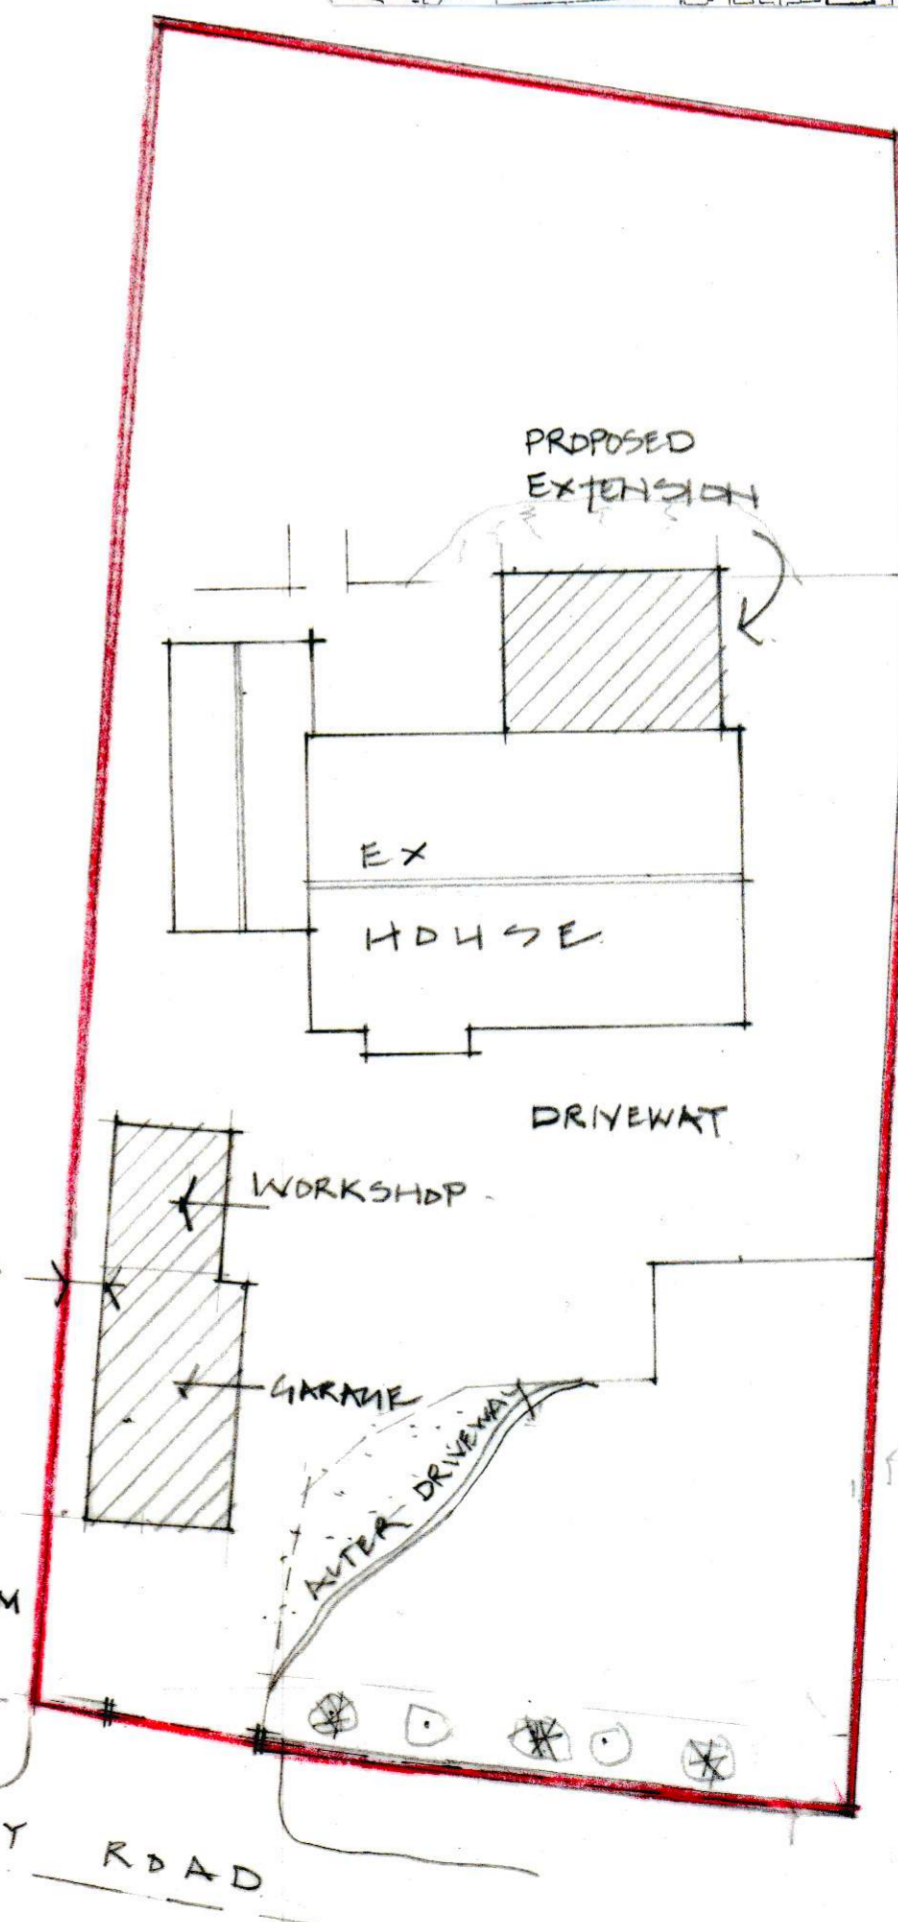 PROPOSED
EXTENSION
EX
HOUSE
DRIVEWAY
WORKSHOP
GARAGE
ALTER DRIVEWAY
M
Y ROAD